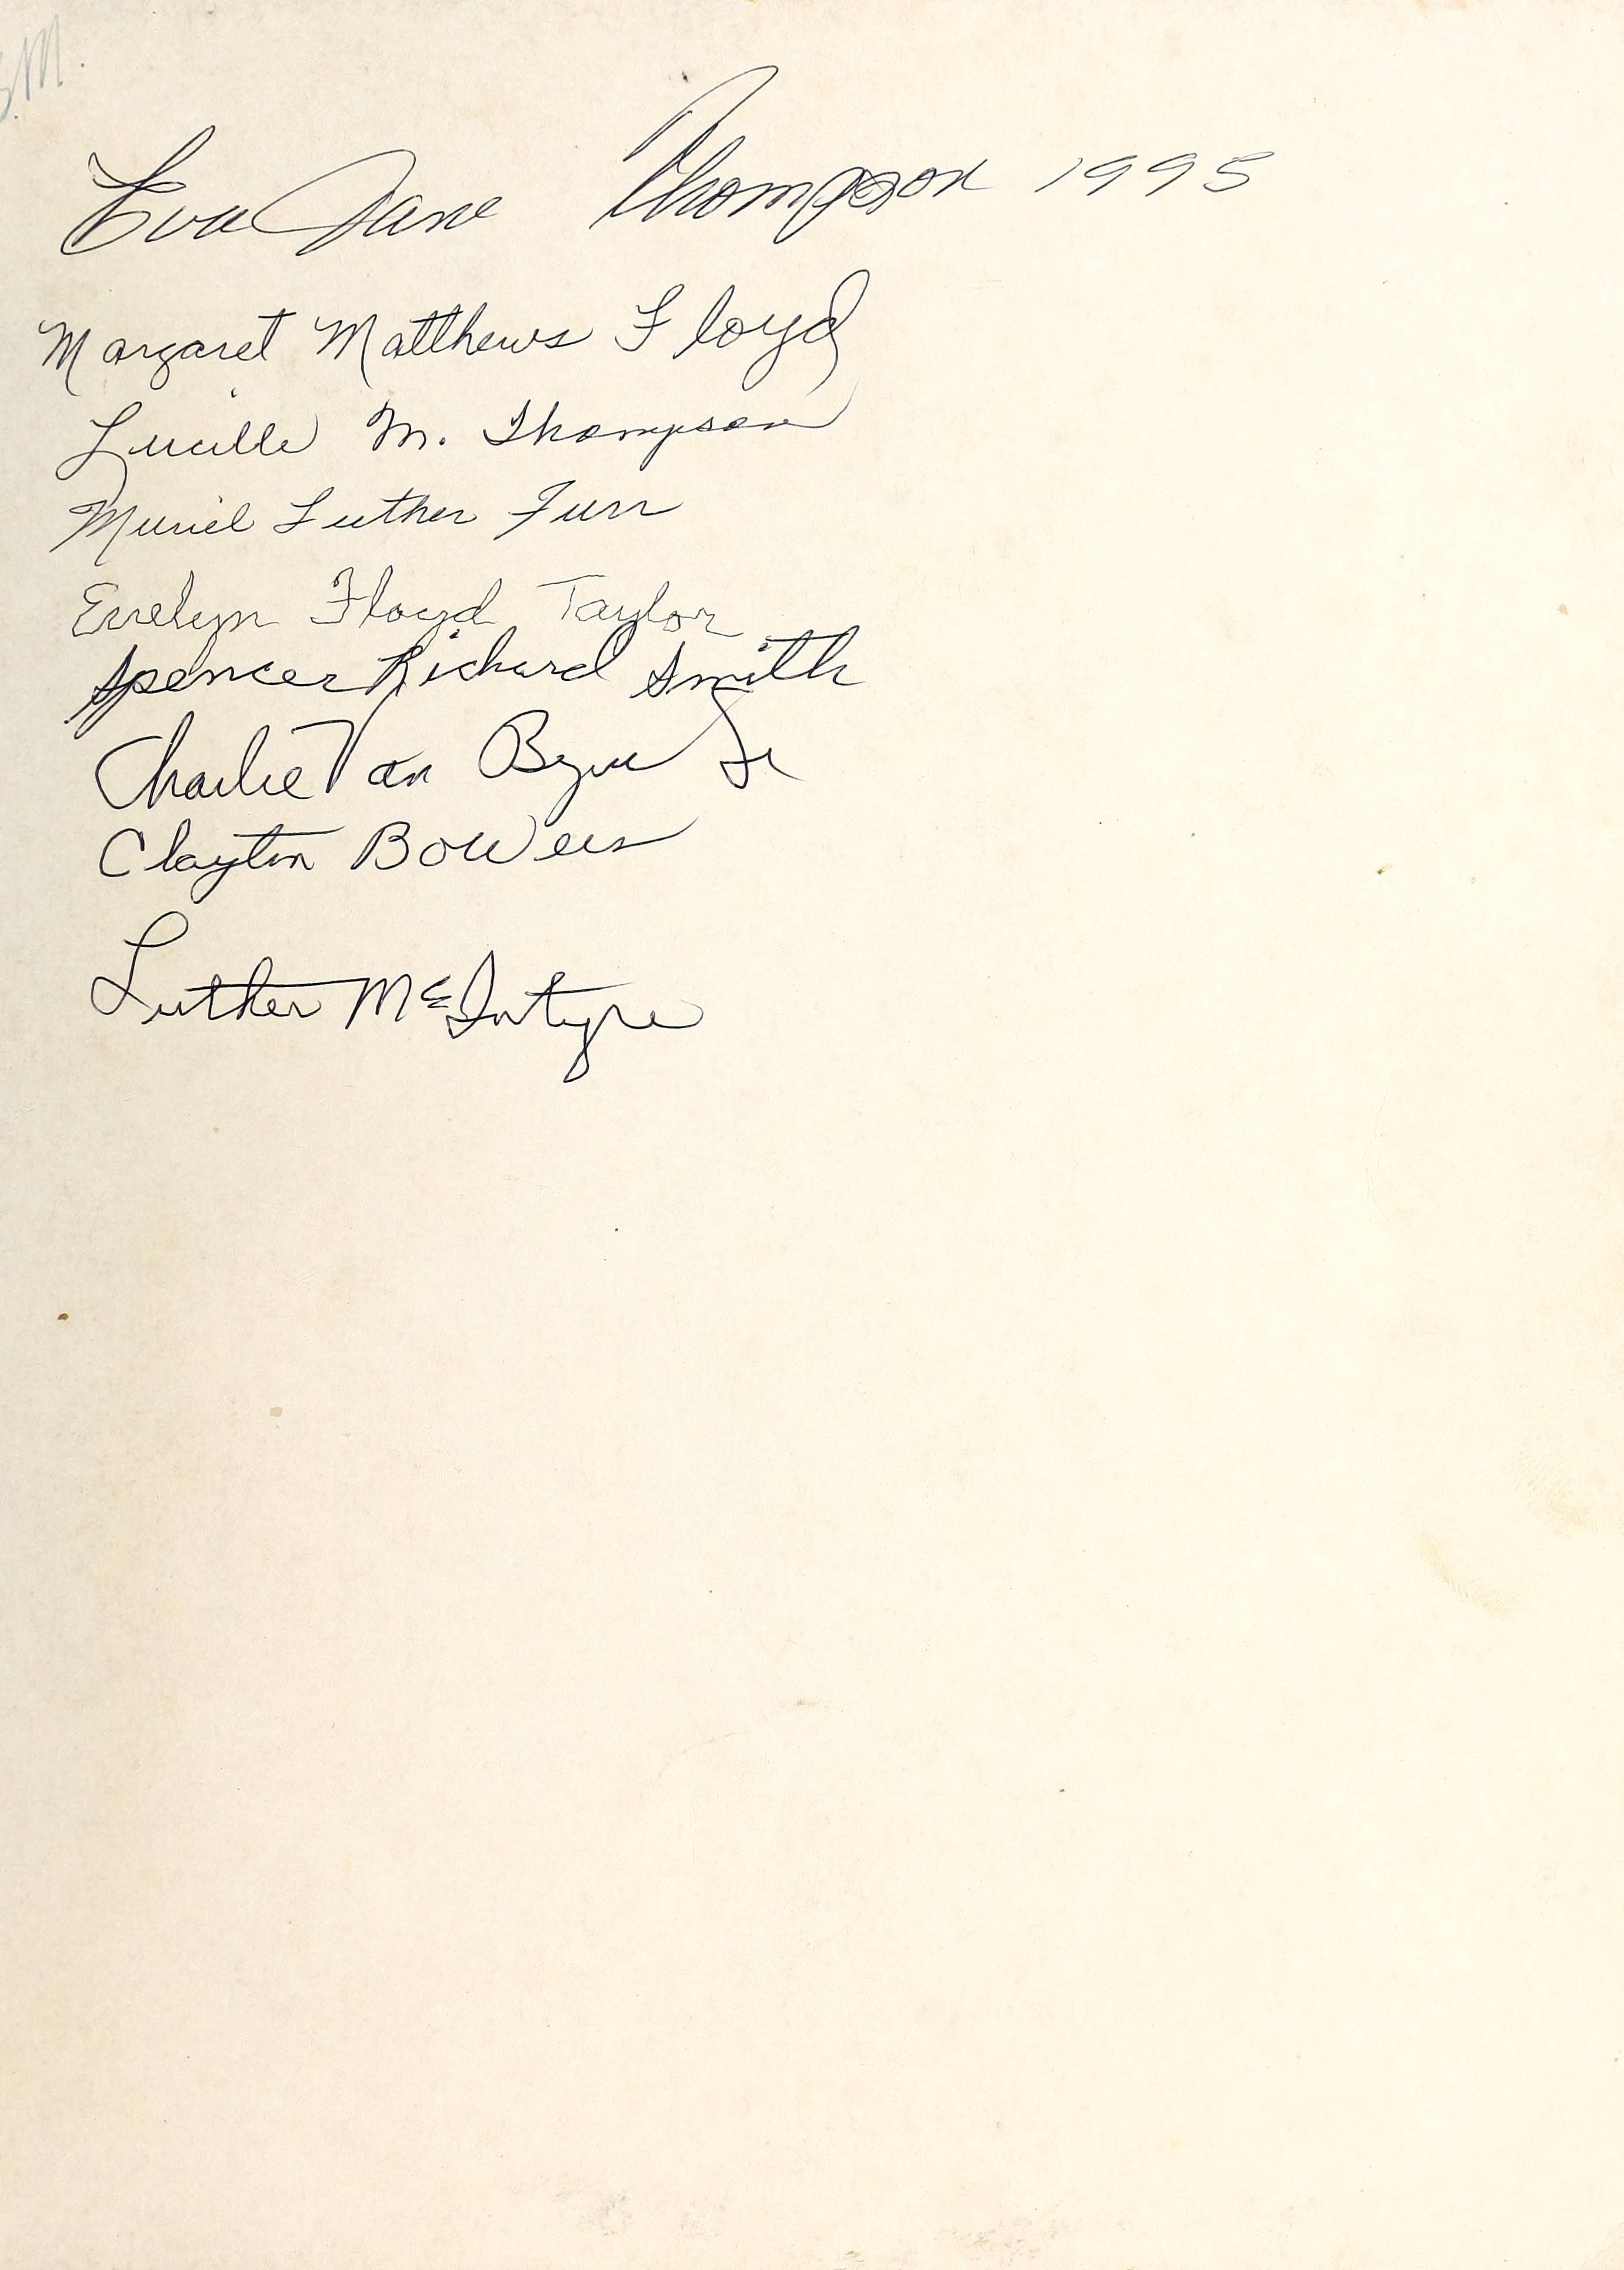 Eva Jane Thompson 1995
Margaret Matthews Floyd
Lucille M. Thompson
Muriel Luther Furr
Evelyn Floyd Taylor
Spencer Richard Smith
Charlie Van Jr
Clayton Bowers
Luther McIntyre